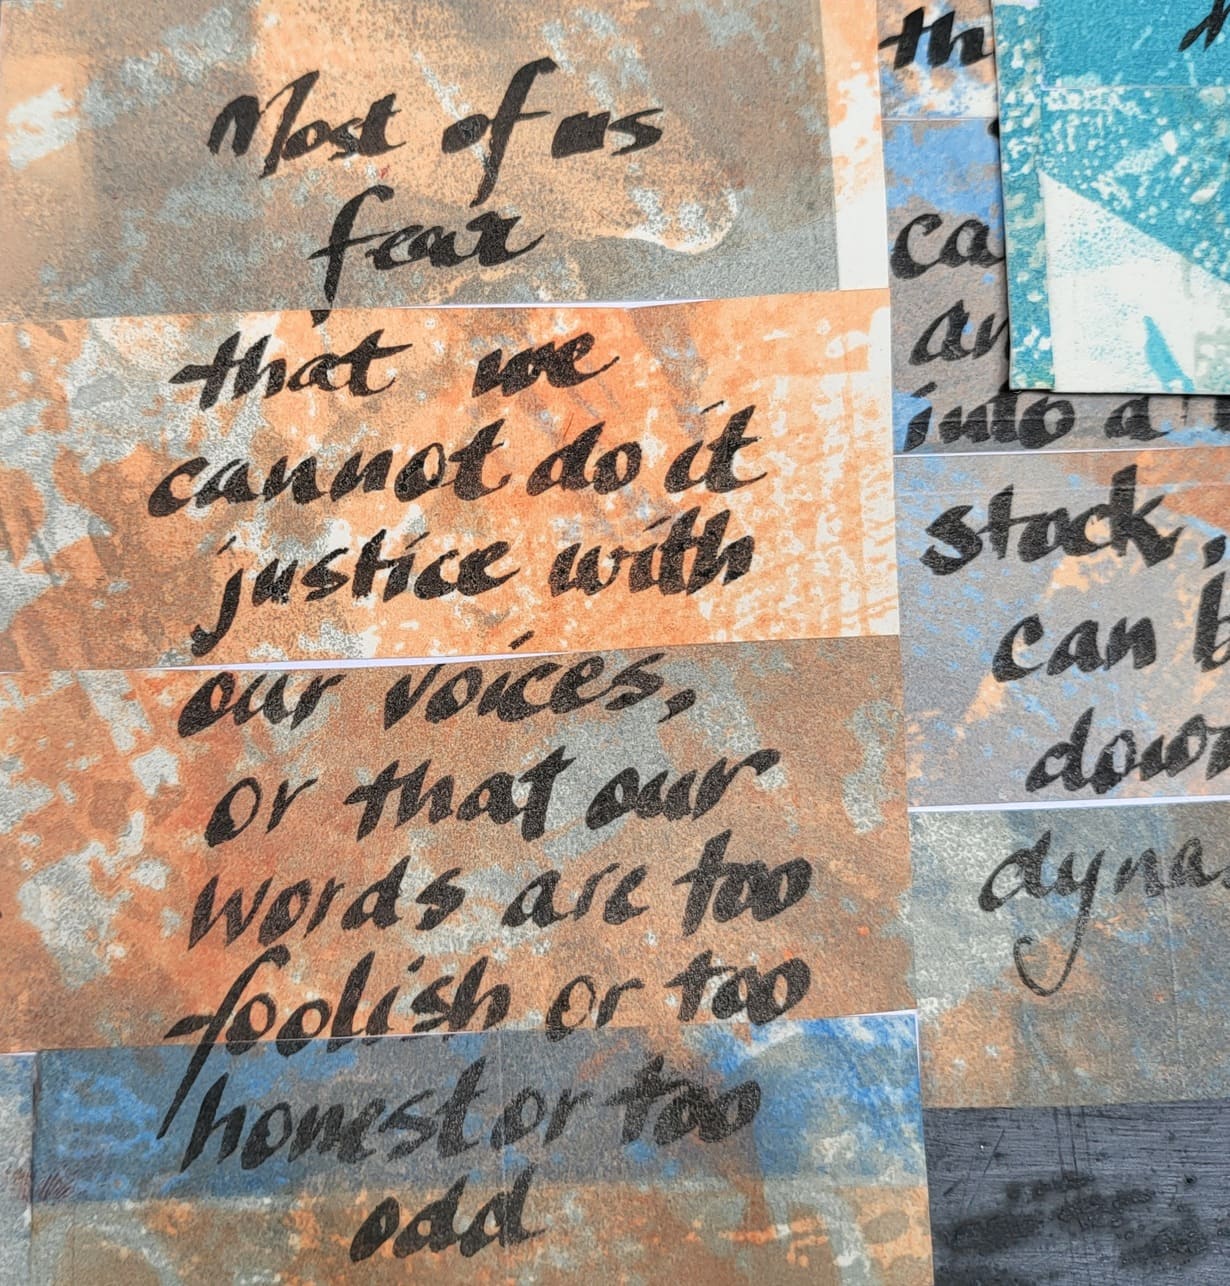 Most of us
fear
that we
cannot do it
justice with
our voices,
or that our
words are too
foolish or too
honest or too
odd
into a
stock,
can